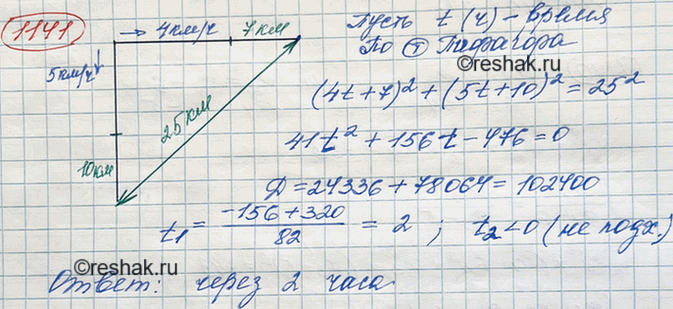 1141
→ 4 км/ч 7 км
5 км/ч
25 км
10 км
Пусть t (ч) - время
По Ⓣ Пифагора
(4t+7)² + (5t+10)² = 25²
41t² + 156t - 476 = 0
D = 24336 + 78064 = 102400
t₁ = (-156 + 320)/82 = 2 ; t₂ < 0 (не подх.)
Ответ: через 2 часа
©reshak.ru
©reshak.ru
©reshak.ru